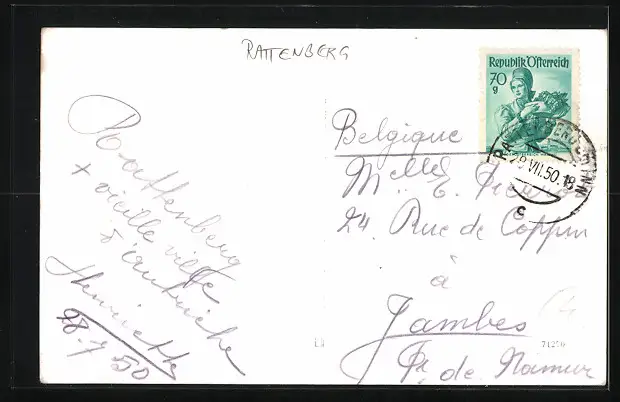 RATTENBERG
Republik Österreich
70
g
RATTENBERG INN
28.VII.50.18
c
Rattenberg
+ vieille ville
d'autriche
Henriette
28.7.50
Belgique
Melle E. Pierro
24. Rue de Coppin
à
Jambes
Pr. de Namur